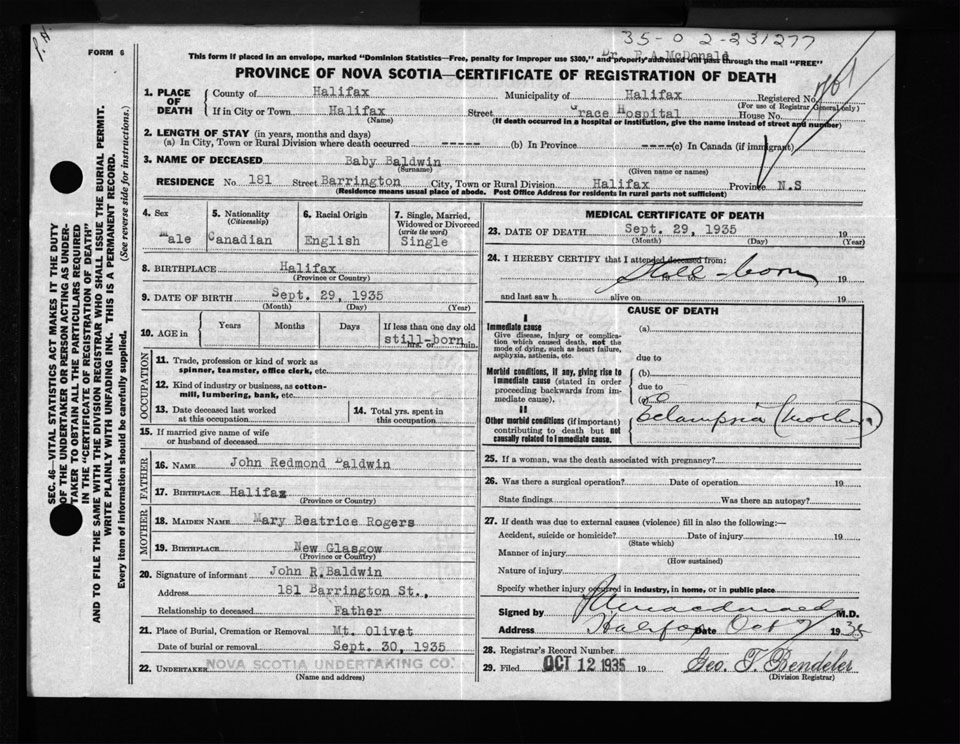 35-0 2-231277
P. H
FORM 6
Dr. R.A. McDonald
This form if placed in an envelope, marked "Dominion Statistics—Free, penalty for improper use $300," and properly addressed will pass through the mail "FREE"
PROVINCE OF NOVA SCOTIA—CERTIFICATE OF REGISTRATION OF DEATH
1. PLACE OF DEATH County of Halifax Municipality of Halifax Registered No.
(For use of Registrar General only)
If in City or Town Halifax Street Grace Hospital House No.
(Name) (If death occurred in a hospital or institution, give the name instead of street and number)
2. LENGTH OF STAY (in years, months and days)
(a) In City, Town or Rural Division where death occurred ----- (b) In Province ----(c) In Canada (if immigrant)
3. NAME OF DECEASED Baby Baldwin
(Surname) (Given name or names)
RESIDENCE No 181 Street Barrington City, Town or Rural Division Halifax Province N.S
(Residence means usual place of abode. Post Office Address for residents in rural parts not sufficient)
4. Sex Male
5. Nationality (Citizenship) Canadian
6. Racial Origin English
7. Single, Married, Widowed or Divorced (write the word) Single
8. BIRTHPLACE Halifax
(Province or Country)
9. DATE OF BIRTH Sept. 29, 1935
(Month) (Day) (Year)
10. AGE in Years Months Days If less than one day old
still-born
hrs. or min.
OCCUPATION
11. Trade, profession or kind of work as
spinner, teamster, office clerk, etc.
12. Kind of industry or business, as cotton-
mill, lumbering, bank, etc.
13. Date deceased last worked
at this occupation
14. Total yrs. spent in
this occupation
15. If married give name of wife
or husband of deceased
FATHER
16. NAME John Redmond Baldwin
17. BIRTHPLACE Halifax
(Province or Country)
MOTHER
18. MAIDEN NAME Mary Beatrice Rogers
19. BIRTHPLACE New Glasgow
(Province or Country)
20. Signature of informant John R. Baldwin
Address 181 Barrington St.,
Relationship to deceased Father
21. Place of Burial, Cremation or Removal Mt. Olivet
Date of burial or removal Sept. 30, 1935
22. UNDERTAKER NOVA SCOTIA UNDERTAKING CO.
(Name and address)
MEDICAL CERTIFICATE OF DEATH
23. DATE OF DEATH Sept. 29, 1935 19
(Month) (Day) (Year)
24. I HEREBY CERTIFY that I attended deceased from:
Still-born 19
and last saw h alive on 19
CAUSE OF DEATH
I
Immediate cause
Give disease, injury or complica-
tion which caused death, not the
mode of dying, such as heart failure,
asphyxia, asthenia, etc.
(a)
due to
Morbid conditions, if any, giving rise to
immediate cause (stated in order
proceeding backwards from im-
mediate cause).
(b)
due to
(c)
II
Other morbid conditions (if important)
contributing to death but not
causally related to immediate cause.
Eclampsia (Mother)
25. If a woman, was the death associated with pregnancy?
26. Was there a surgical operation? Date of operation 19
State findings Was there an autopsy?
27. If death was due to external causes (violence) fill in also the following:—
Accident, suicide or homicide? Date of injury 19
(State which)
Manner of injury
(How sustained)
Nature of injury
Specify whether injury occurred in industry, in home, or in public place
Signed by R A Macdonald M.D.
Address Halifax Date Oct 7 1935
28. Registrar's Record Number
29. Filed OCT 12 1935 19 Geo. T. Rendeler
(Division Registrar)
SEC. 46—VITAL STATISTICS ACT MAKES IT THE DUTY
OF THE UNDERTAKER OR PERSON ACTING AS UNDER-
TAKER TO OBTAIN ALL THE PARTICULARS REQUIRED
IN THE "CERTIFICATE OF REGISTRATION OF DEATH"
AND TO FILE THE SAME WITH THE DIVISION REGISTRAR WHO SHALL ISSUE THE BURIAL PERMIT.
WRITE PLAINLY WITH UNFADING INK. THIS IS A PERMANENT RECORD.
Every item of information should be carefully supplied. (See reverse side for instructions.)